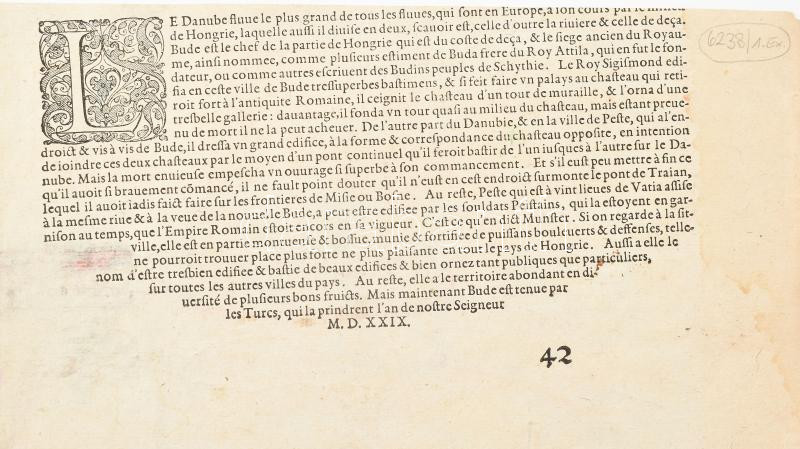 LE Danube fluue le plus grand de tous les fluues, qui sont en Europe, a son cours par le milieu
de Hongrie, laquelle aussi il diuise en deux, scauoir est, celle d'outre la riuiere & celle de deça.
Bude est le chef de la partie de Hongrie qui est du coste de deça, & le siege ancien du Royau-
me, ainsi nommee, comme plusieurs estiment de Buda frere du Roy Attila, qui en fut le fon-
dateur, ou comme autres escriuent des Budins peuples de Schythie. Le Roy Sigismond edi-
fia en ceste ville de Bude tressuperbes bastimens, & si feit faire vn palays au chasteau qui reti-
roit fort à l'antiquite Romaine, il ceignit le chasteau d'un tour de muraille, & l'orna d'une
tresbelle gallerie: dauantage, il fonda vn tour quasi au milieu du chasteau, mais estant preue-
nu de mort il ne la peut acheuer. De l'autre part du Danubie, & en la ville de Peste, qui al'en-
droict & vis à vis de Bude, il dressa vn grand edifice, à la forme & correspondance du chasteau opposite, en intention
de ioindre ces deux chasteaux par le moyen d'un pont continuel qu'il feroit bastir de l'un iusques à l'autre sur le Da-
nube. Mais la mort enuieuse empescha vn ouurage si superbe à son commancement. Et s'il eust peu mettre à fin ce
qu'il auoit si brauement cõmancé, il ne fault point douter qu'il n'eust en cest endroict surmonte le pont de Traian,
lequel il auoit iadis faict faire sur les frontieres de Misie ou Bosne. Au reste, Peste qui est à vint lieues de Vatia assise
à la mesme riue & à la veue de la nouuelle Bude, a peut estre edifiee par les souldats Pestains, qui la estoyent en gar-
nison au temps, que l'Empire Romain estoit encors en sa vigueur. C'est ce qu'en dict Munster. Si on regarde à la sit-
ville, elle est en partie montueuse & bossue, munie & fortifiee de puissans bouleuerts & deffenses, telle-
ne pourroit trouuer place plus forte ne plus plaisante en tout le pays de Hongrie. Aussi a elle le
nom d'estre tresbien edifiee & bastie de beaux edifices & bien ornez tant publiques que particuliers,
sur toutes les autres villes du pays. Au reste, elle a le territoire abondant en di-
uersité de plusieurs bons fruicts. Mais maintenant Bude est tenue par
les Turcs, qui la prindrent l'an de nostre Seigneur
M. D. XXIX.
42
6238/1.Ex.